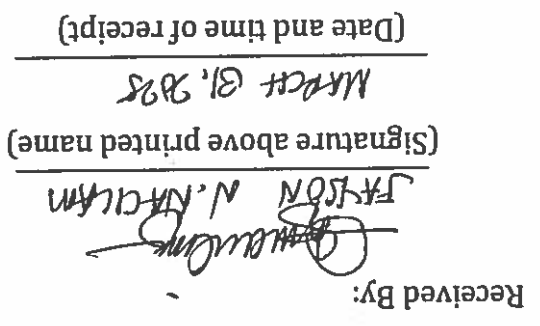 Received By:
JAYSON N. NACILAM
(Signature above printed name)
MARCH 31, 2025
(Date and time of receipt)